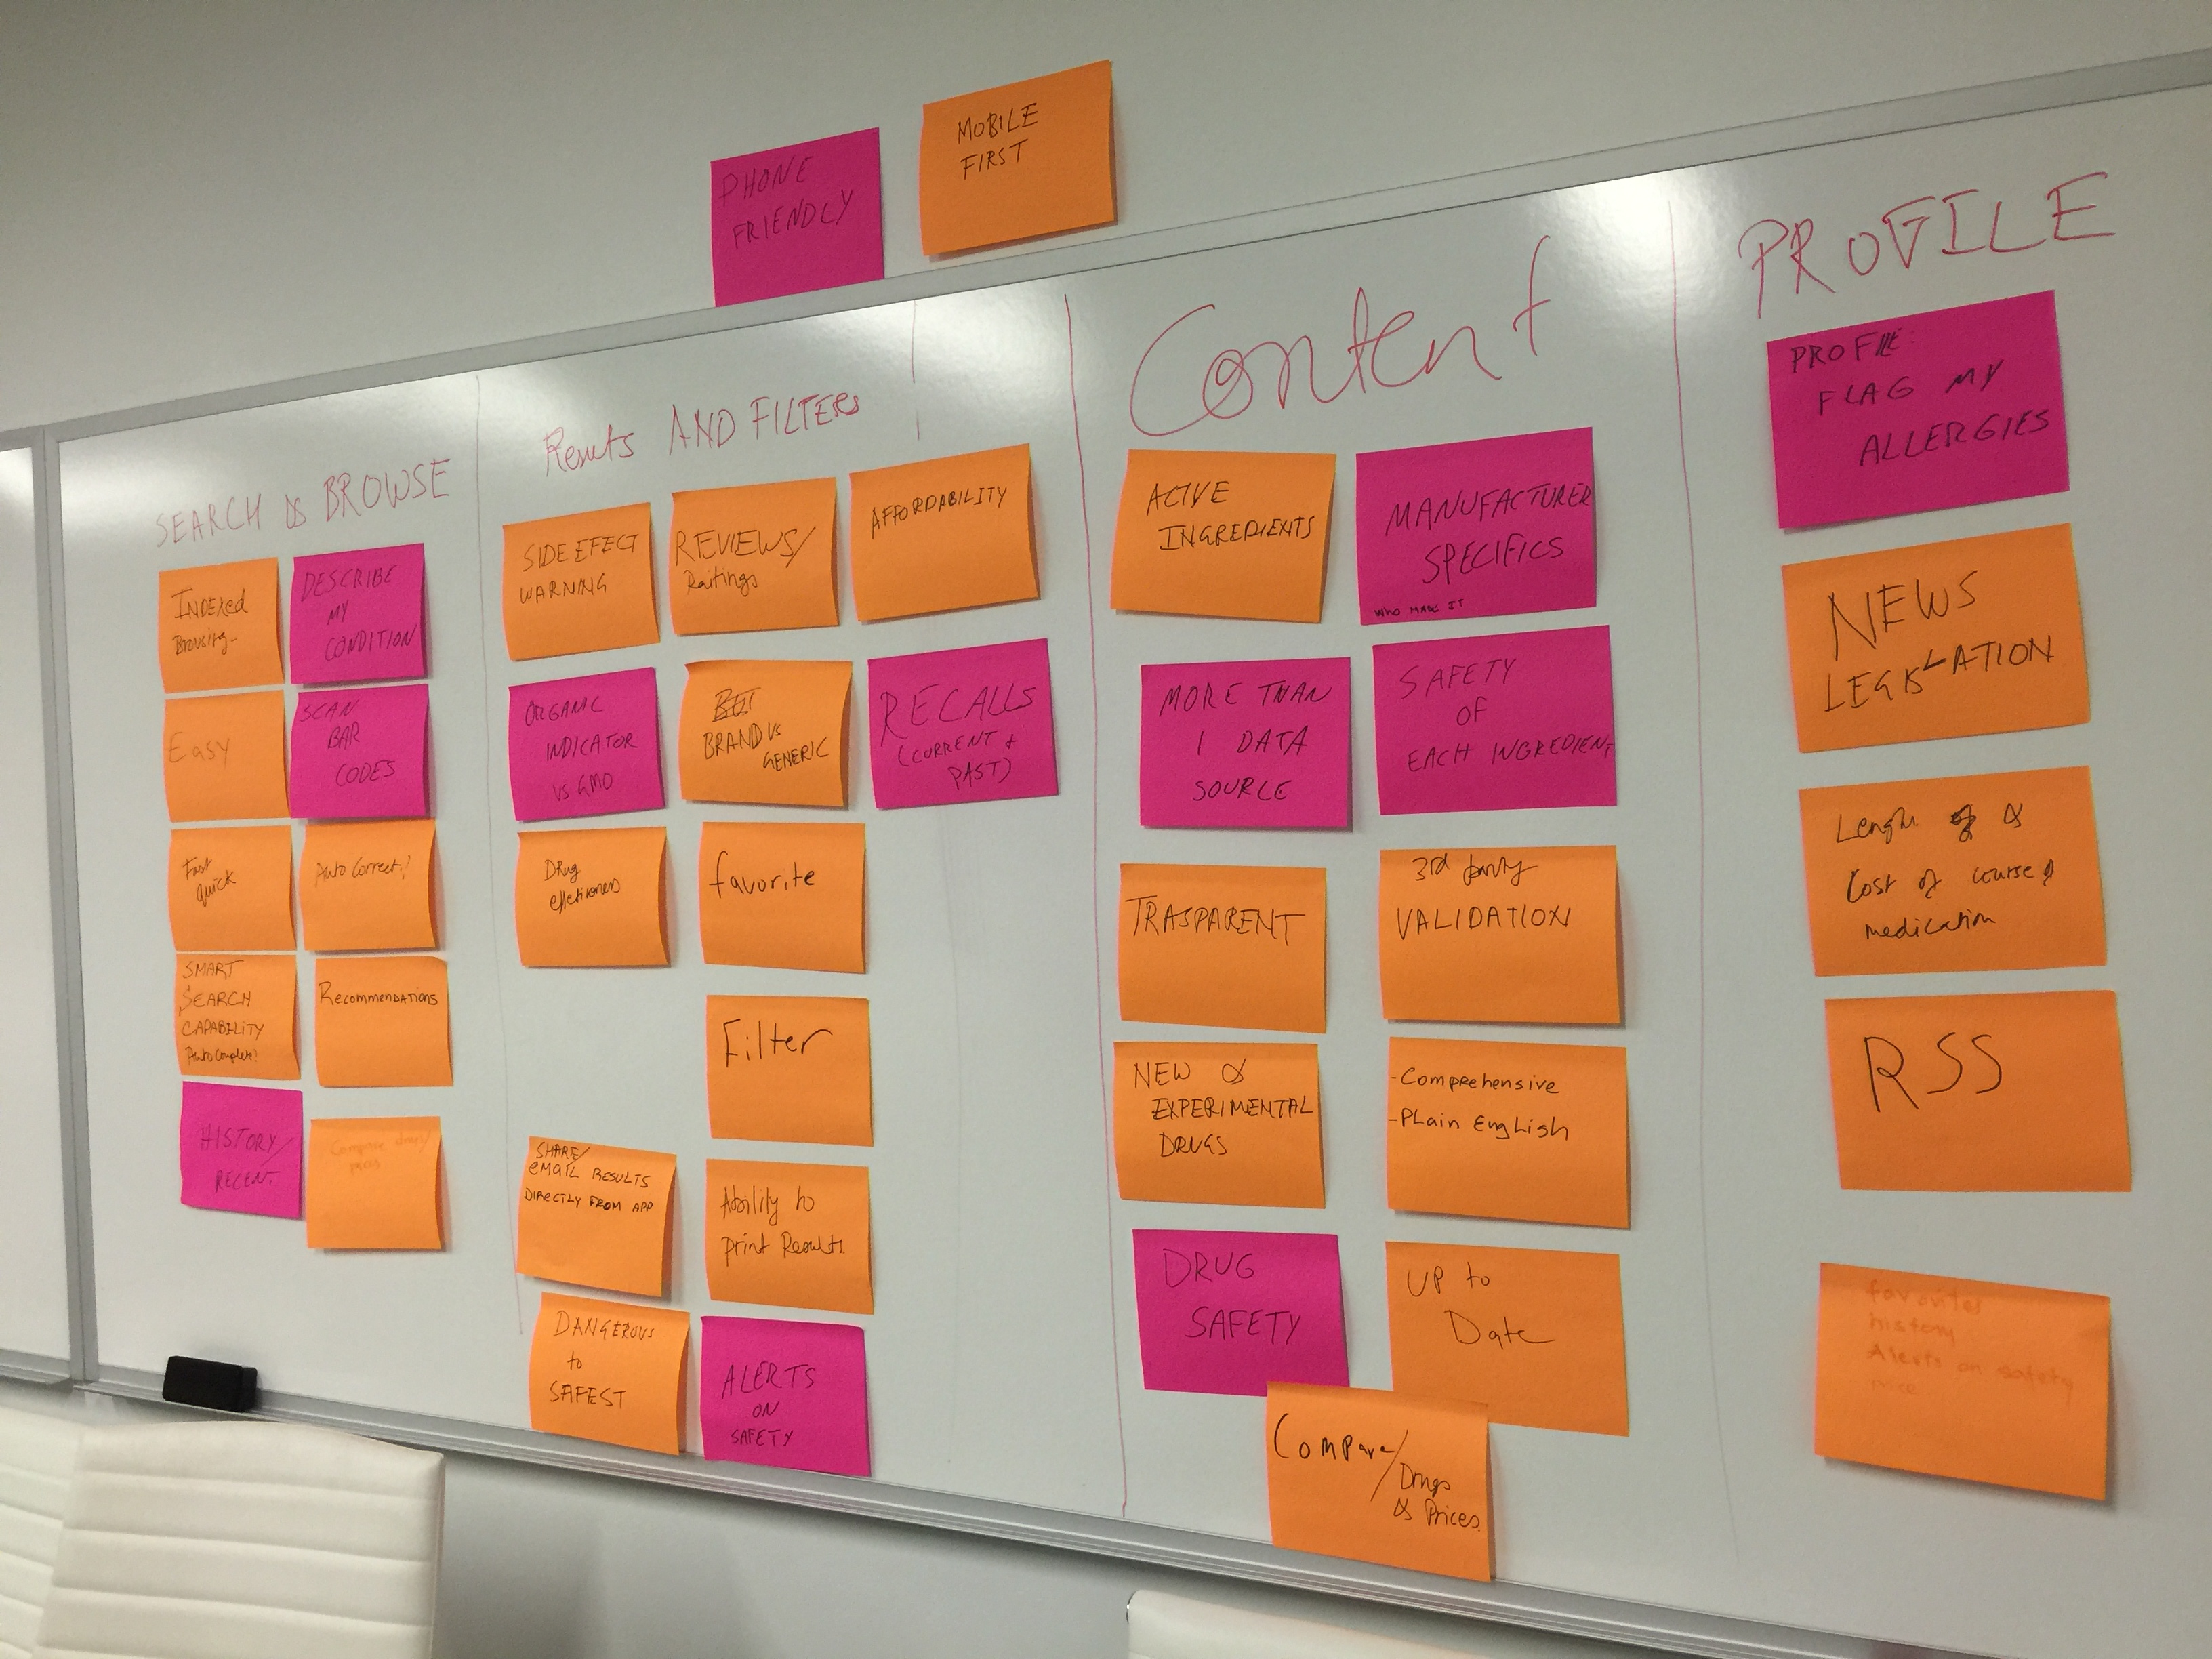 PHONE
FRIENDLY
MOBILE
FIRST
SEARCH & BROWSE
INDEXed
Browsing-
DESCRIBE
MY
CONDITION
Easy
SCAN
BAR
CODES
Fast
Quick
Auto Correct!
SMART
SEARCH
CAPABILITY
Auto Complete!
RECOMMENDATIONS
HISTORY/
RECENT
Compare drugs/
prices
Results AND FILTERS
SIDE EFFECT
WARNING
REVIEWS/
Raitings
AFFORDABILITY
ORGANIC
INDICATOR
VS GMO
BRAND VS
GENERIC
RECALLS
(CURRENT +
PAST)
Drug
effectiveness
favorite
Filter
SHARE/
eMAIL RESULTS
DIRECTLY FROM APP
Ability to
print Results
DANGEROUS
to
SAFEST
ALERTS
ON
SAFETY
Content
ACTIVE
INGREDIENTS
MANUFACTURER
SPECIFICS
WHO MADE IT
MORE THAN
1 DATA
SOURCE
SAFETY
OF
EACH INGREDIENT
TRASPARENT
3rd party
VALIDATION
NEW &
EXPERIMENTAL
DRUGS
-Comprehensive
-Plain English
DRUG
SAFETY
UP to
Date
Compare/
Drugs
& Prices
PROFILE
PROFILE:
FLAG MY
ALLERGIES
NEWS
LEGISLATION
Lengh of &
Cost of course of
medication
RSS
favorites
history
Alerts on safety
price